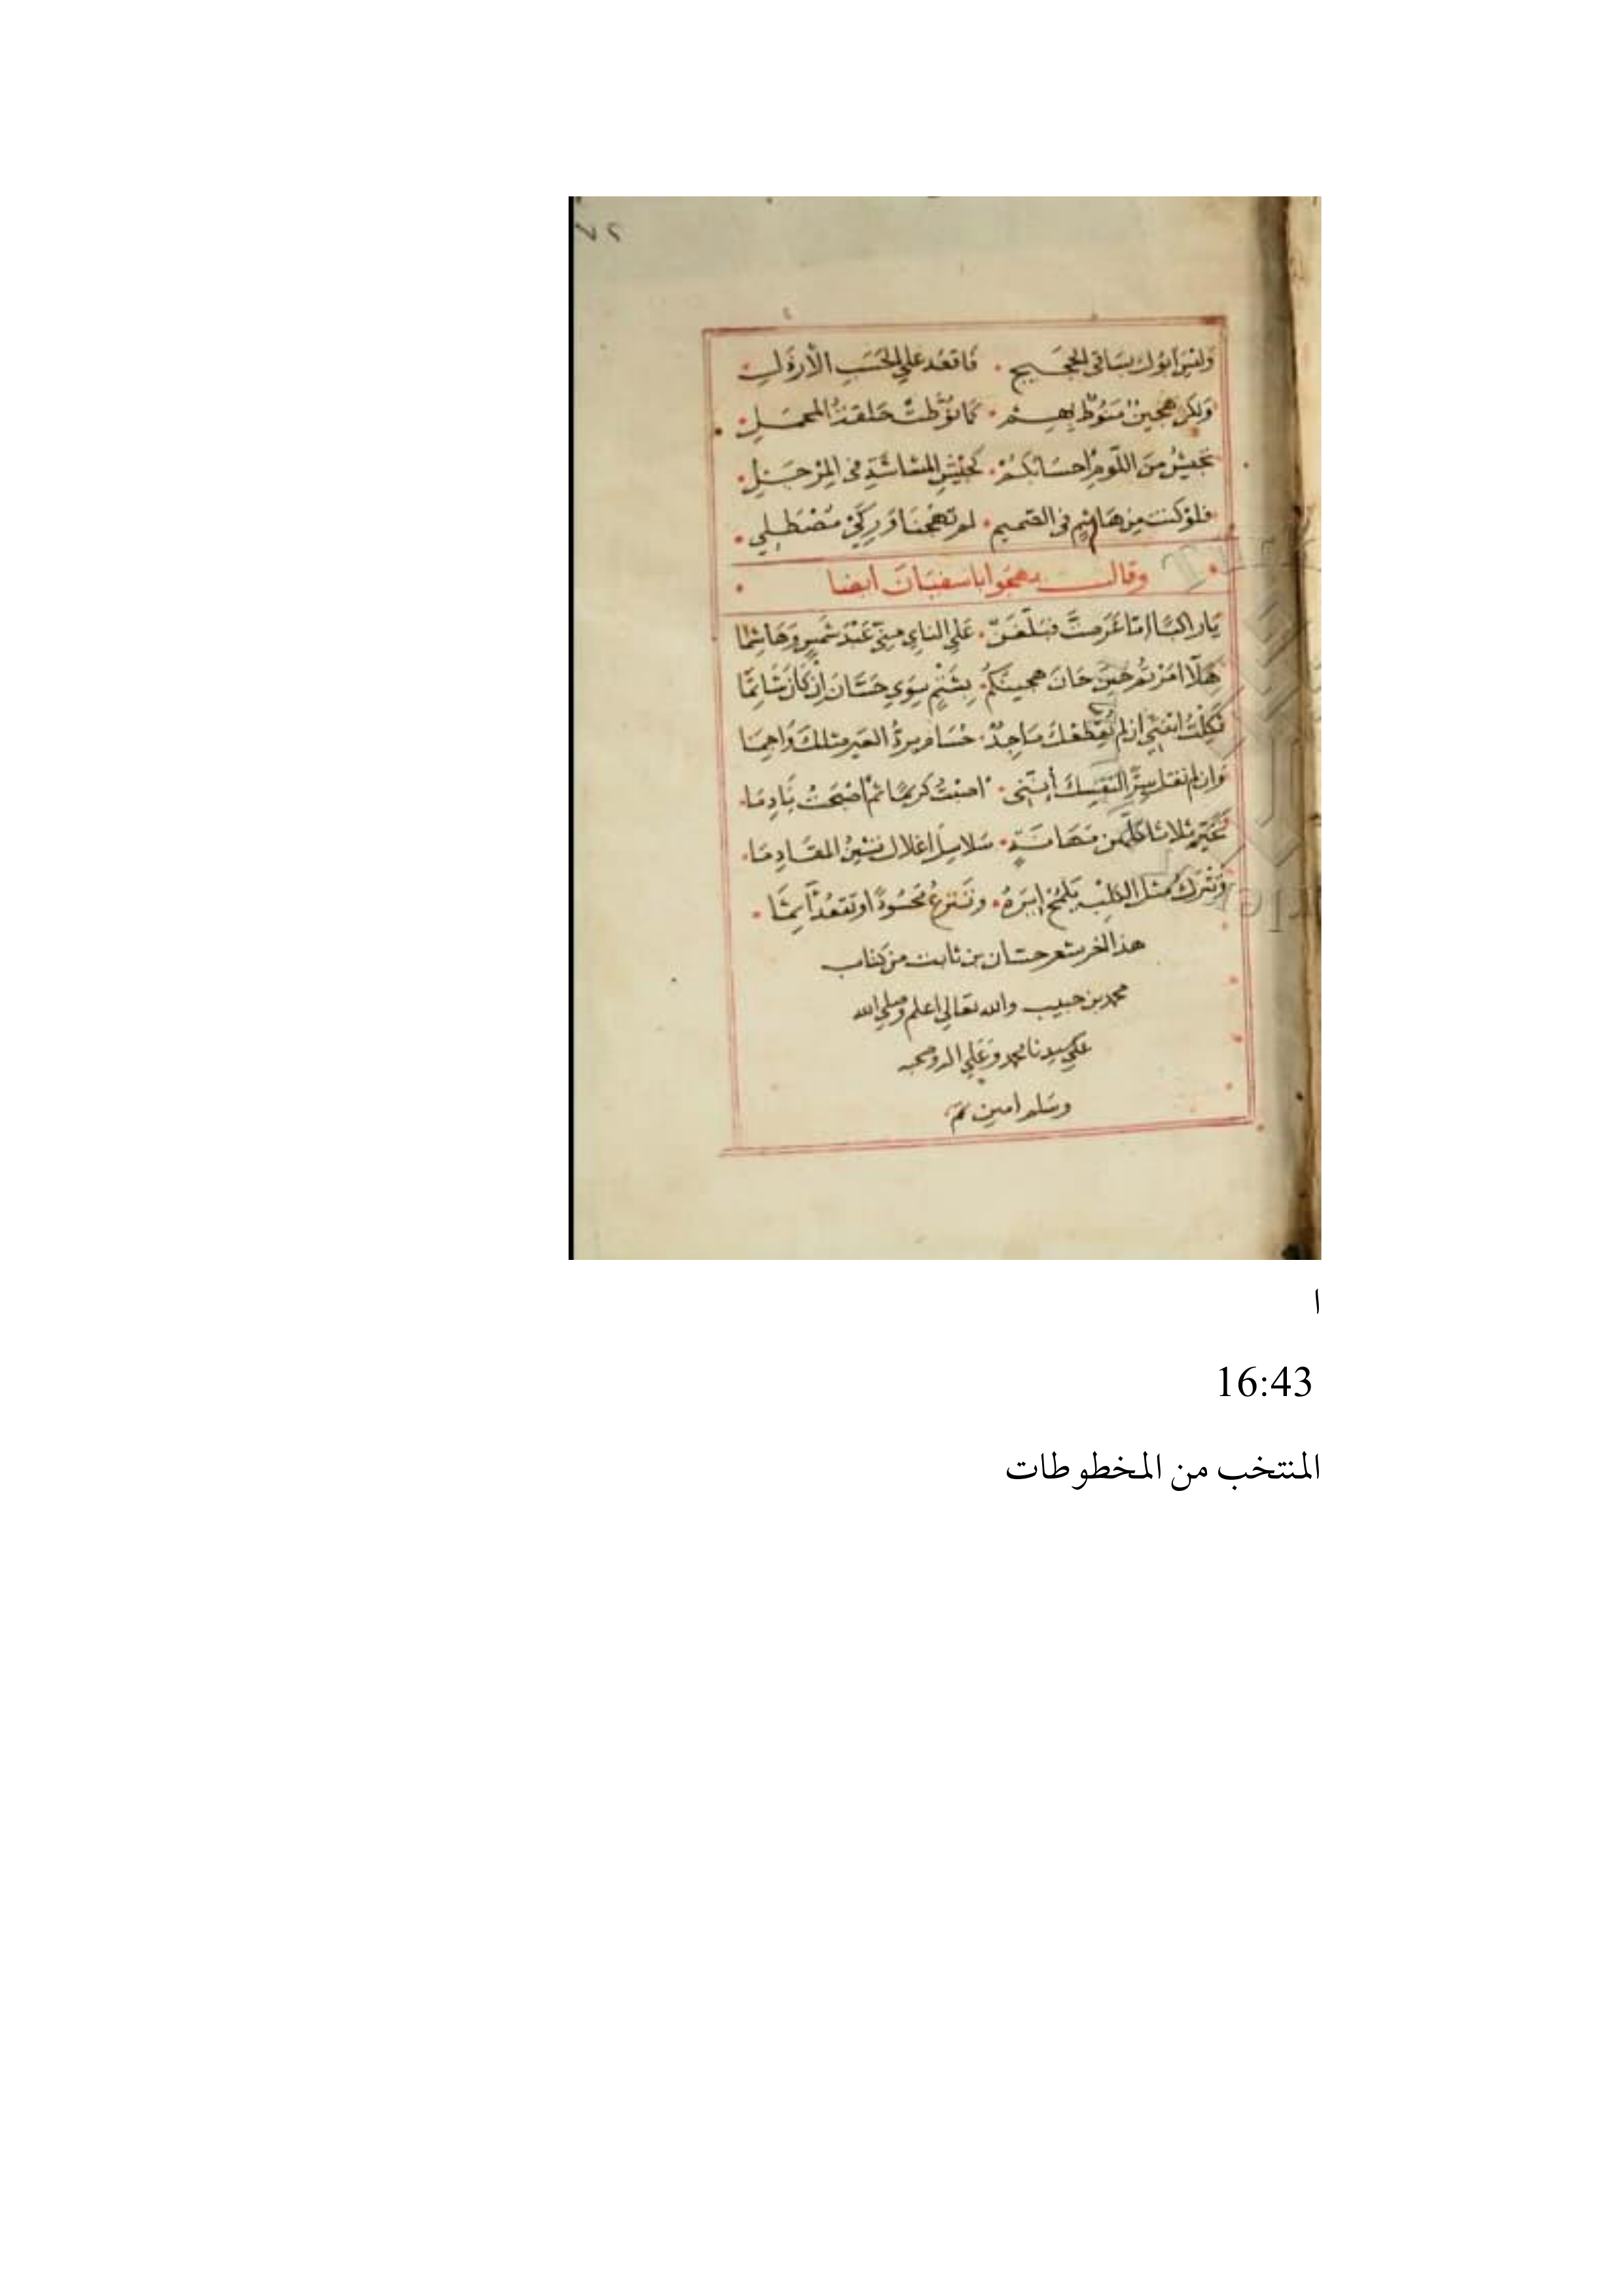 ٧٢
وَليْسَ ابُوك بسَاقى الحَجَـيج • فَاقعُد عَلي الحَسَبِ الْأرذَلِ
وَلكن هجين مَنُوط بهـم • كما نُوِّطَتْ حَلقَةُ المحمَلِ
تَجيشُ مِنَ اللّومِ احسَابكُمْ • كجَيْشِ المشاشَةِ فى المِرْجَلِ
فلوْ كنتَ مِن هَاشِم فى الصّميم • لم تهْجُنَا وَركىْ مُصْطَلِي •
وقال يهجوا ابا سفيَان ايضا
يَا راكبًا امّا عَرَضتَ فبَلّغَنْ • عَلي الناي مِنّي عَبْدَ شَمْسٍ وَهَاشِمَا
هَلّا امَرْتم حينَ حَانَ هجينكُمْ • بشَتْمٍ سِوَي حَسَّانَ إنْ كَانَ شَاتِمَّا
ثَكِلْتُ ابْنَتِي ان لم يُقَطّعْكَ مَاجِدٌ • حُسَام يردُّ العَيرَ مثلكَ وَاجِمَا
وَان لم تقل سِرًّا لنَفسِكَ أنّنى • اصَبْتُ كَرِيمًا ثم اصْبَحْتُ نَادِمَا •
ثلاثا كلّهن مَهَانَةٍ • سَلاسِلُ اغلال تشينُ المقَادِمَا •
وَتُتْرَك مِثل الكَلْبِ يَلْمَحُ ايْرَهُ • وتَنزِعُ مَحْسُودًا اوتَقعُدُ آثِمَا •
هذا اخر شعر حسّان بن ثابت من كتاب
محمد بن حبيب والله تعالي اعلم وصلي الله
علي سيدنا محمد وَعَلي اله وصحبه
وسَلم امين تم
ا
16:43
المنتخب من المخطوطات